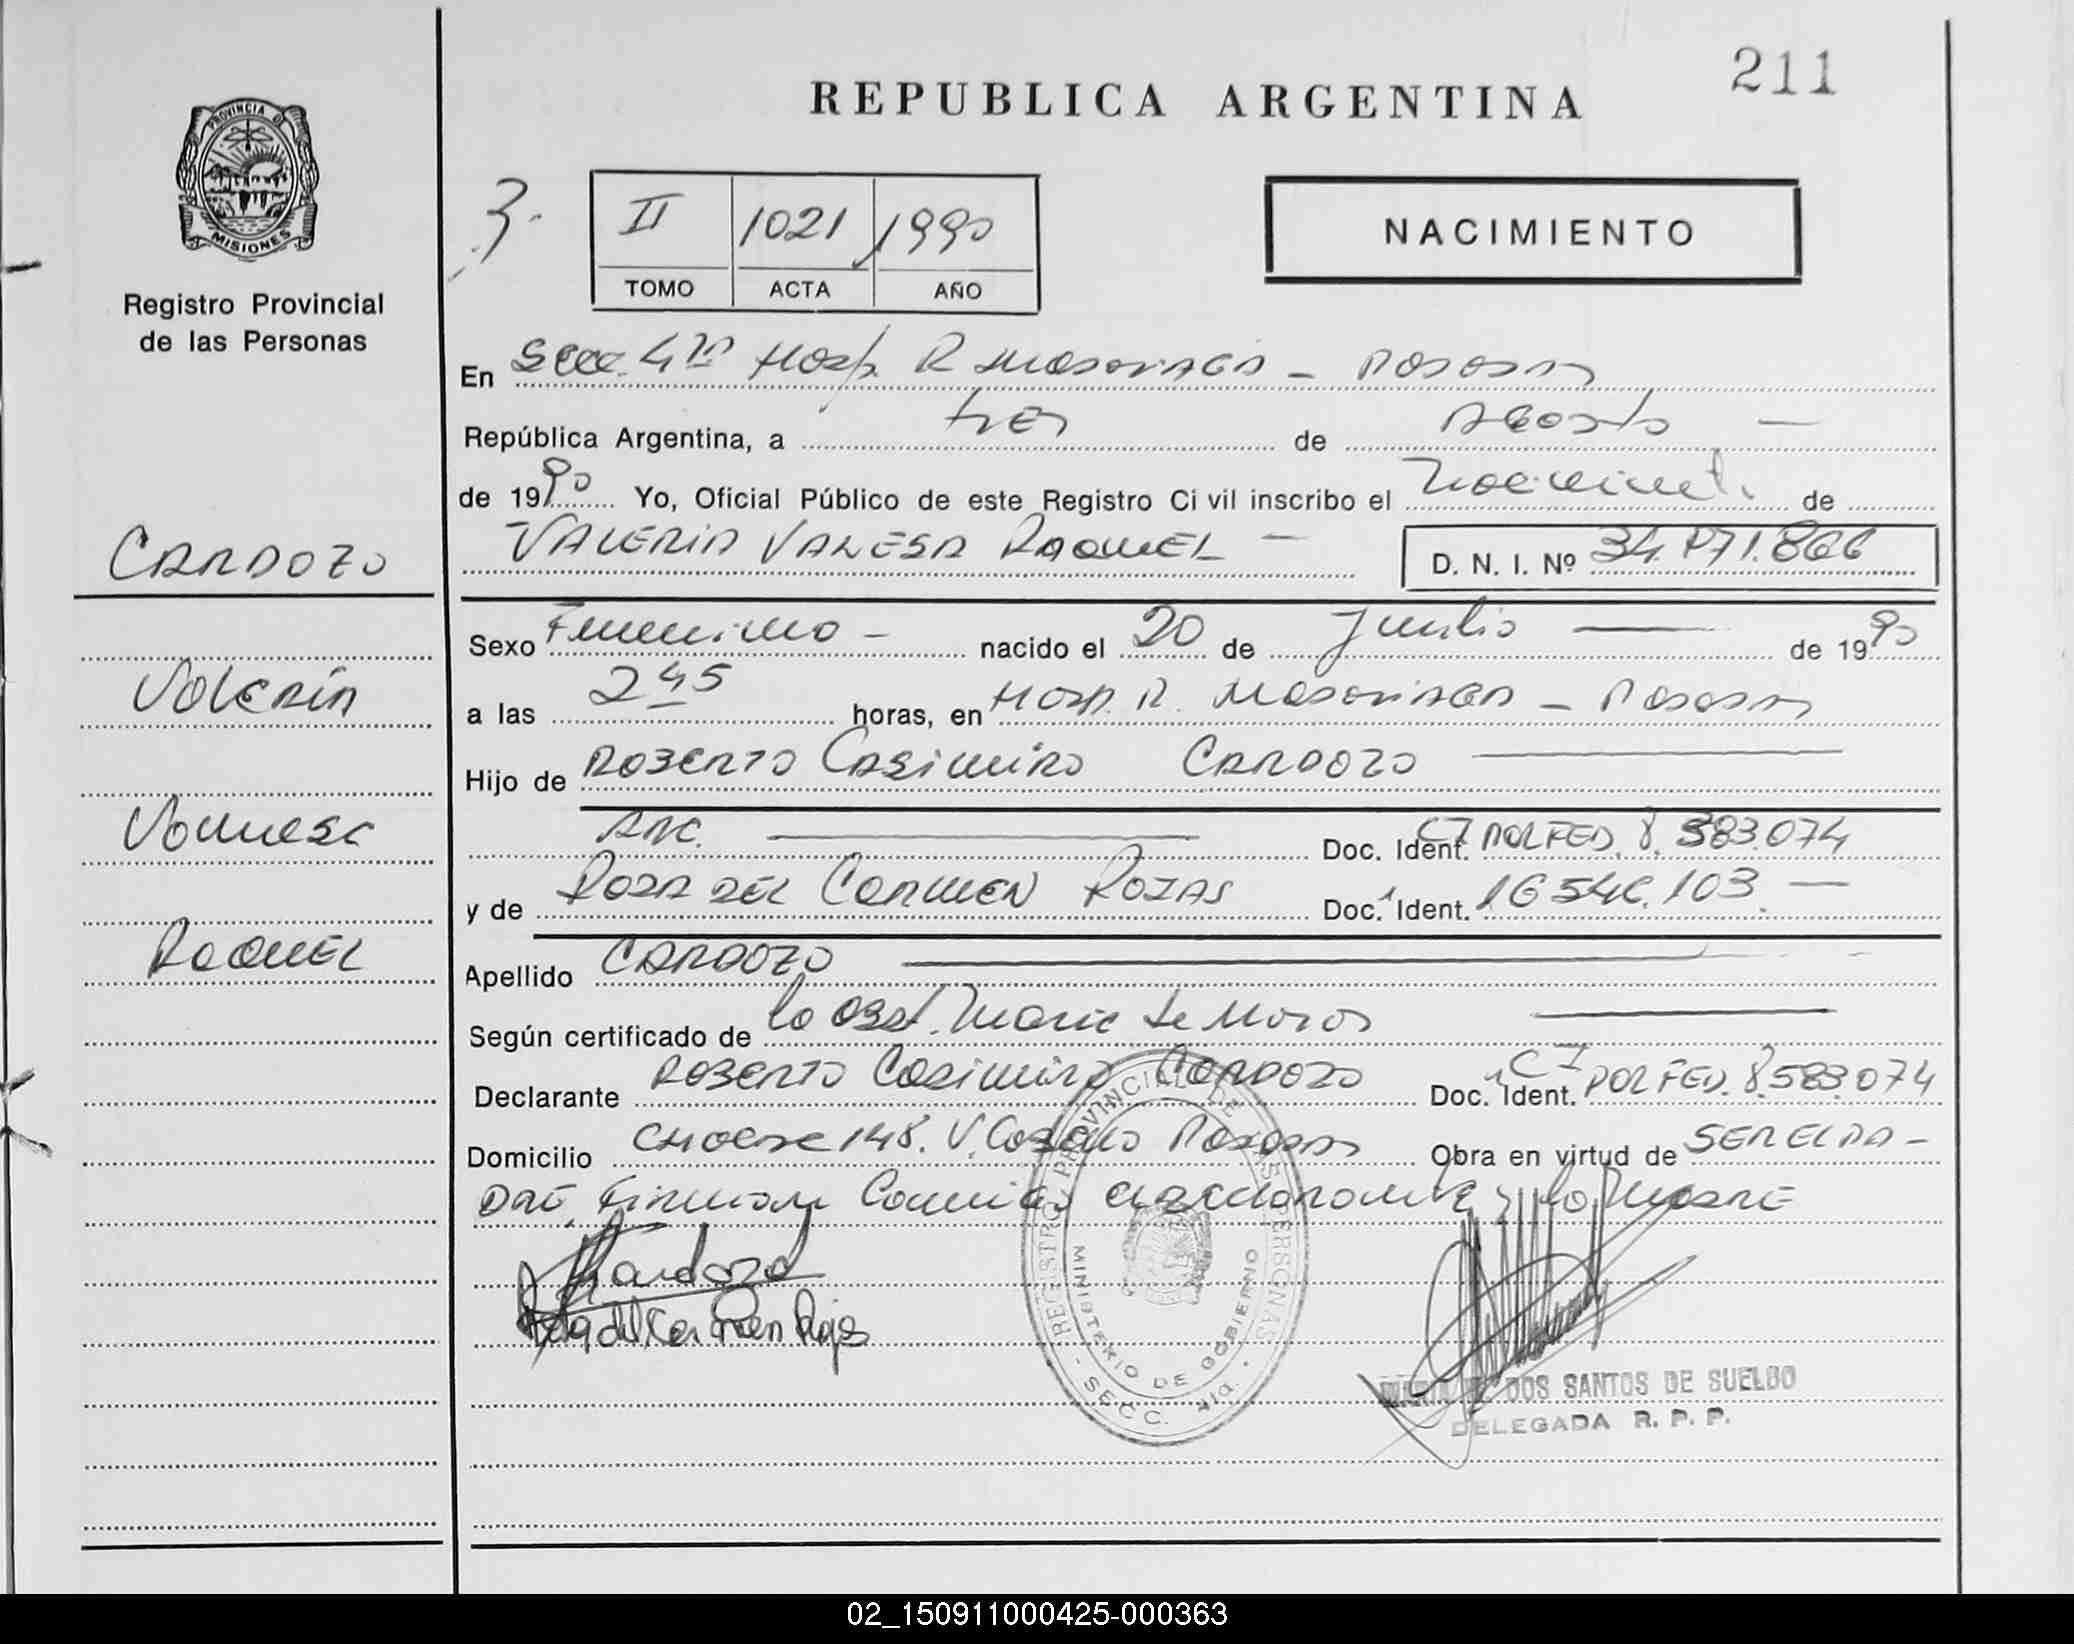 211
REPUBLICA ARGENTINA
PROVINCIA DE
MISIONES
Registro Provincial
de las Personas
3.
II 1021 1990
TOMO ACTA AÑO
NACIMIENTO
En Secc. 4ta Hosp. R. Madariaga - Posadas
República Argentina, a tres de Agosto
de 1990 Yo, Oficial Público de este Registro Ci vil inscribo el de
CARDOZO
VALERIA VANESA RAQUEL -
D. N. I. Nº
Sexo Femenino - nacido el 20 de de 1990
Valeria
a las 2 45 horas, en Hosp. R. Madariaga - Posadas
Hijo de ROBERTO CASIMIRO CARDOZO
Vanesa
ARG. Doc. Ident. CI POL FED. 8.
y de ROSA DEL CARMEN ROJAS Doc. Ident. 103. -
RAQUEL
Apellido CARDOZO
Según certificado de la Obst. Maria de
Declarante ROBERTO CASIMIRO CARDOZO Doc. Ident. CI POL FED. 8.583.074
Domicilio 148. V. Posadas Obra en virtud de SER EL PA-
DRE, Firman y la MADRE
Cardozo
Rosa del Carmen Rojas
REGISTRO PROVINCIAL DE LAS PERSONAS
MINISTERIO DE GOBIERNO
- SECC. 4ta. -
DOS SANTOS DE SUELDO
DELEGADA R. P. P.
02_150911000425-000363